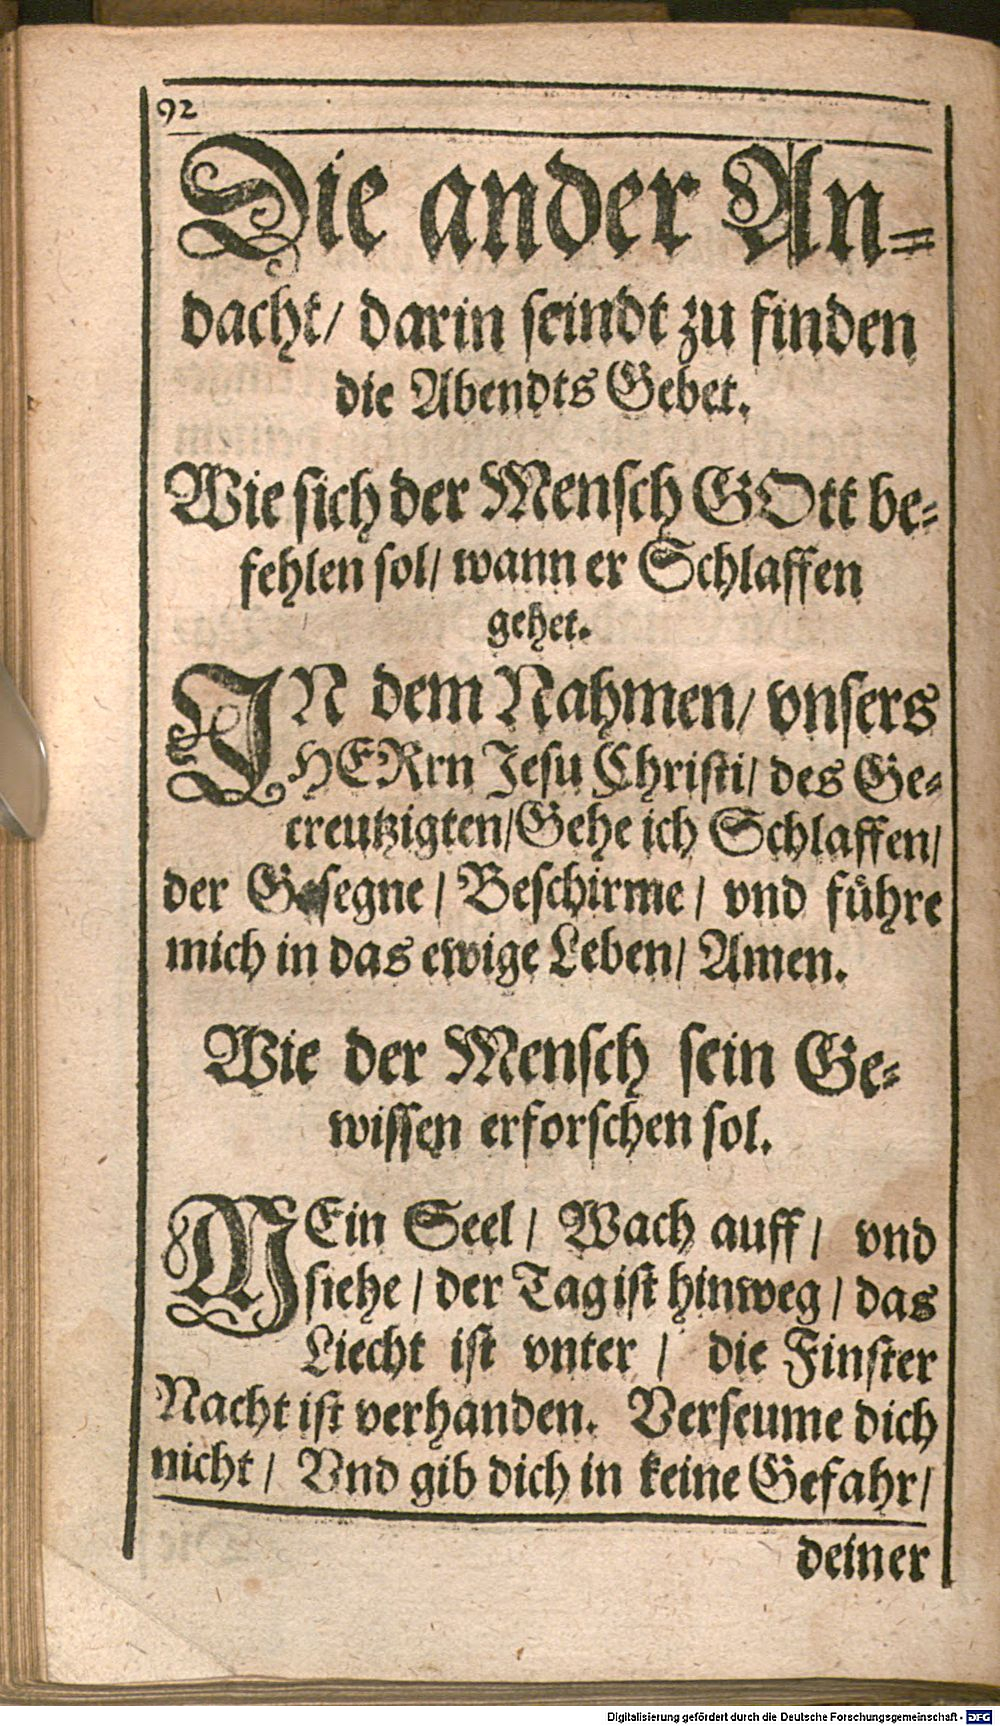 92
Die ander An-
dacht/ darin seindt zu finden
die Abendts Gebet.
Wie sich der Mensch GOtt be-
fehlen sol/ wann er Schlaffen
gehet.
IN dem Nahmen/ vnsers
HERrn Jesu Christi/ des Ge-
creutzigten/ Gehe ich Schlaffen/
der Gesegne/ Beschirme/ vnd führe
mich in das ewige Leben/ Amen.
Wie der Mensch sein Ge-
wissen erforschen sol.
MEin Seel/ Wach auff/ vnd
siehe/ der Tag ist hinweg/ das
Liecht ist vnter/ die Finster
Nacht ist verhanden. Verseume dich
nicht/ Vnd gib dich in keine Gefahr/
deiner
Digitalisierung gefördert durch die Deutsche Forschungsgemeinschaft - DFG